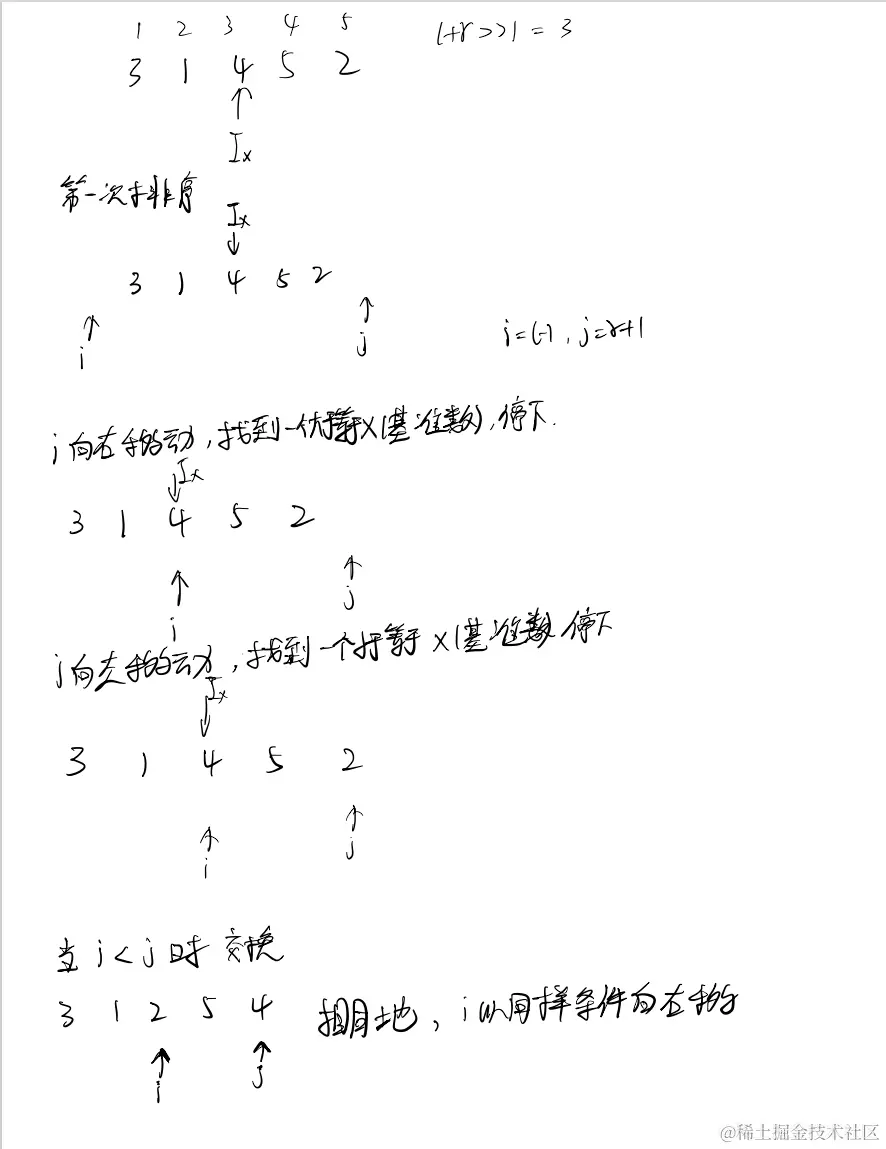 1 2 3 4 5 l+r>>1 = 3
3 1 4 5 2
x
第一次排序
x
3 1 4 5 2
i j i=l-1, j=r+1
i向右移动,找到一个大于等于x(基准数),停下.
x
3 1 4 5 2
i j
j向左移动,找到一个小于等于x(基准数 停下
x
3 1 4 5 2
i j
当 i<j 时 交换
3 1 2 5 4 相同地, i以同样条件向右移
i j
@稀土掘金技术社区